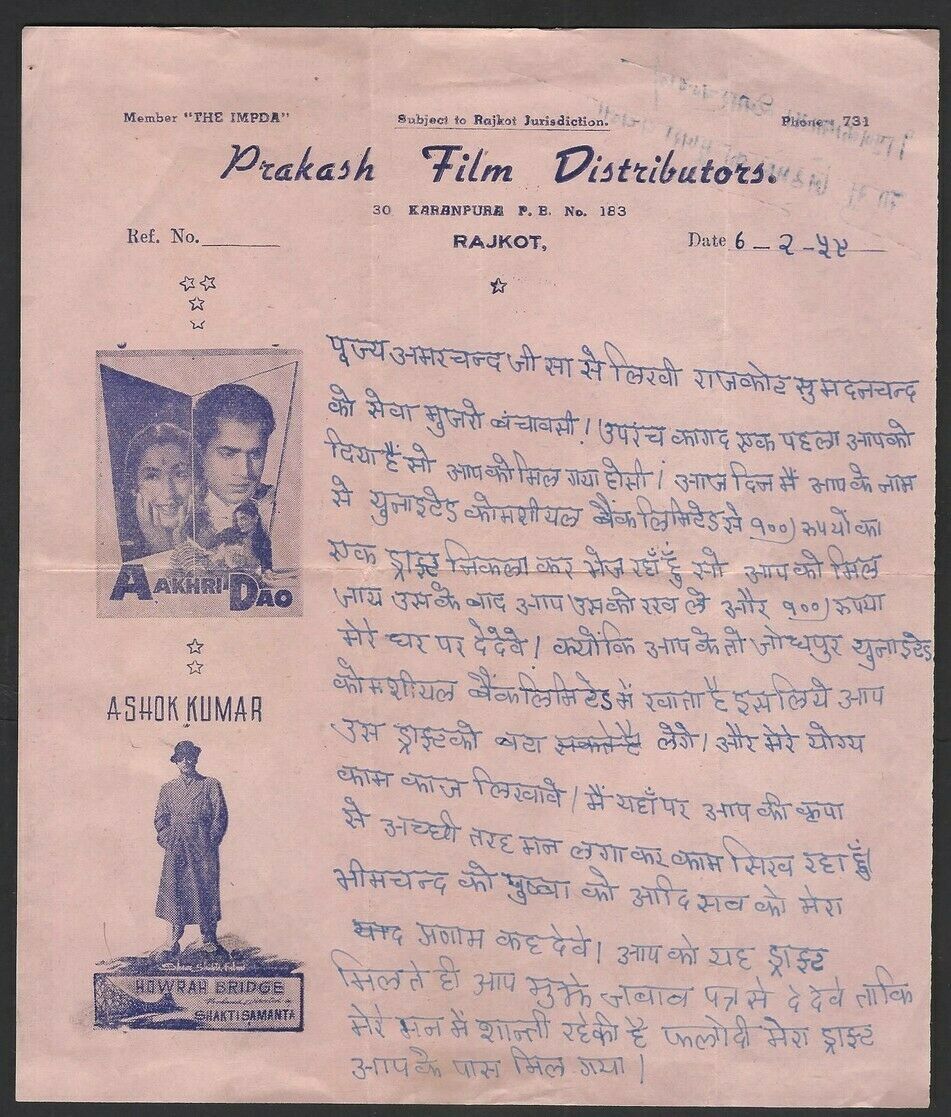 Member "THE IMPDA"
Subject to Rajkot Jurisdiction.
Phone: 731
Prakash Film Distributors.
30 KARANPURA P. B. No. 183
Ref. No.
RAJKOT,
Date 6 - २ - ५९
पूज्य अमरचन्द जी सा से लिखी राजकोट सु मदनचन्द
को सेवा मुजरो बंचावसी। उपरंच कागद एक पहला आपको
दिया हैं सो आपको मिल गया होसी। आज दिन मैं आप के नाम
से युनाइटेड कोमर्शीयल बैंक लिमिटेड से १००) रुपयों का
एक ड्राफ्ट निकला कर भेज रहाँ हुँ सो आप को मिल
जाय उसके बाद आप उसको रख ले और १००) रुपया
मेरे घर पर देदेवे। क्योंकि आप के तो जोधपुर युनाइटेड
कोमर्शीयल बैंक लिमिटेड में खाता है इस लिये आप
उस ड्राफ्ट को बटा सकते है लेगे। और मेरे योग्य
काम काज लिखावे। मैं यहाँ पर आप की कृपा
से अच्छी तरह मन लगा कर काम सिख रहा हुँ
भीमचन्द को पुष्पा को आदि सब को मेरा
प्रणाम कह देवे। आप को यह ड्राफ्ट
मिलते ही आप मुझे जवाब पत्र से दे देवे ताकि
मेरे मन में शान्ती रहेकी है फलोदी मेरा ड्राफ्ट
आपके पास मिल गया।
AAKHRI DAO
ASHOK KUMAR
HOWRAH BRIDGE
SHAKTI SAMANTA